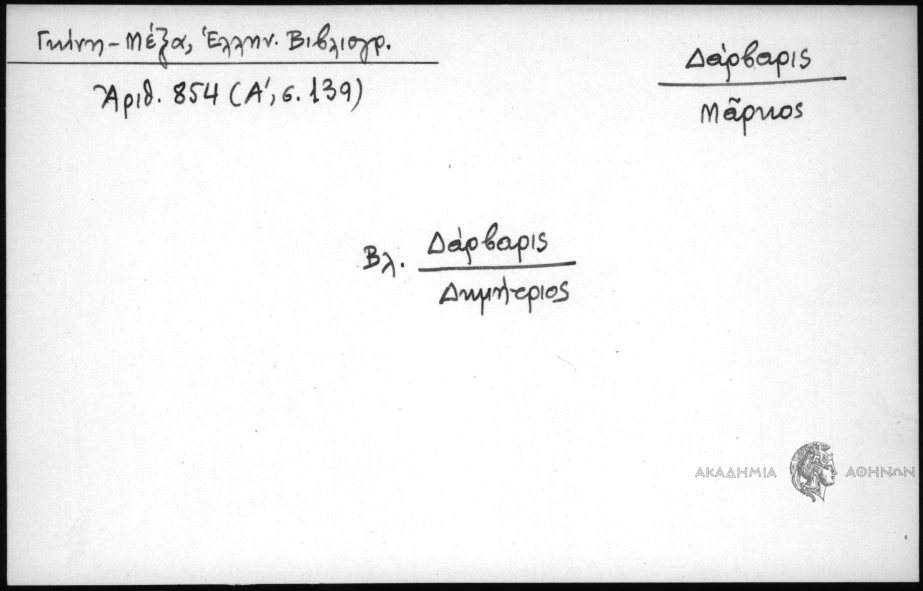 Γκίνη-Μέξα, Ἑλλην. Βιβλιογρ.
Ἀριθ. 854 (Α', σ. 139)
Δάρβαρις
Μᾶρκος
Βλ. Δάρβαρις
Δημήτριος
ΑΚΑΔΗΜΙΑ ΑΘΗΝΩΝ